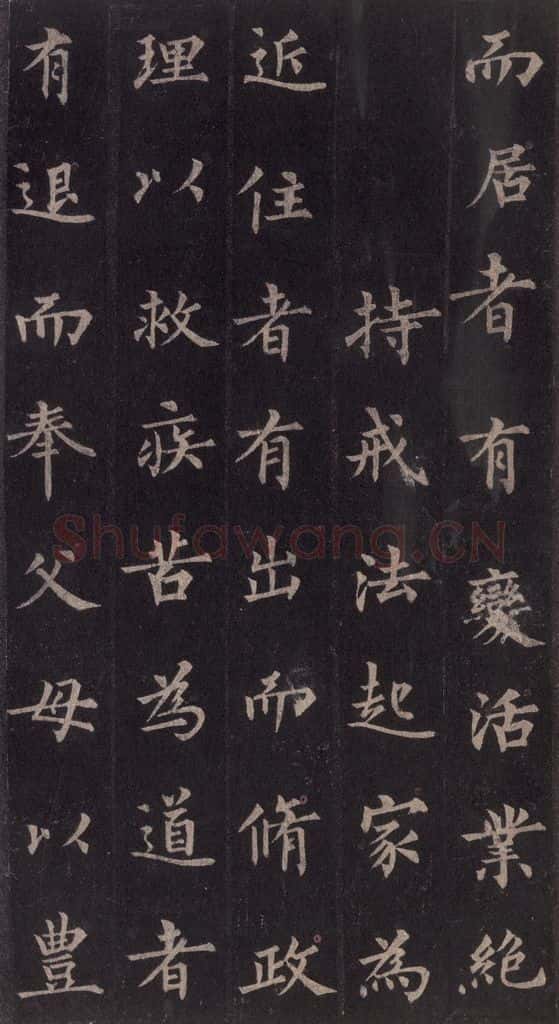 而居者有變活業絶
持戒法起家為
近住者有出而脩政
理以救疾苦為道者
有退而奉父母以豊
Shufawang.CN